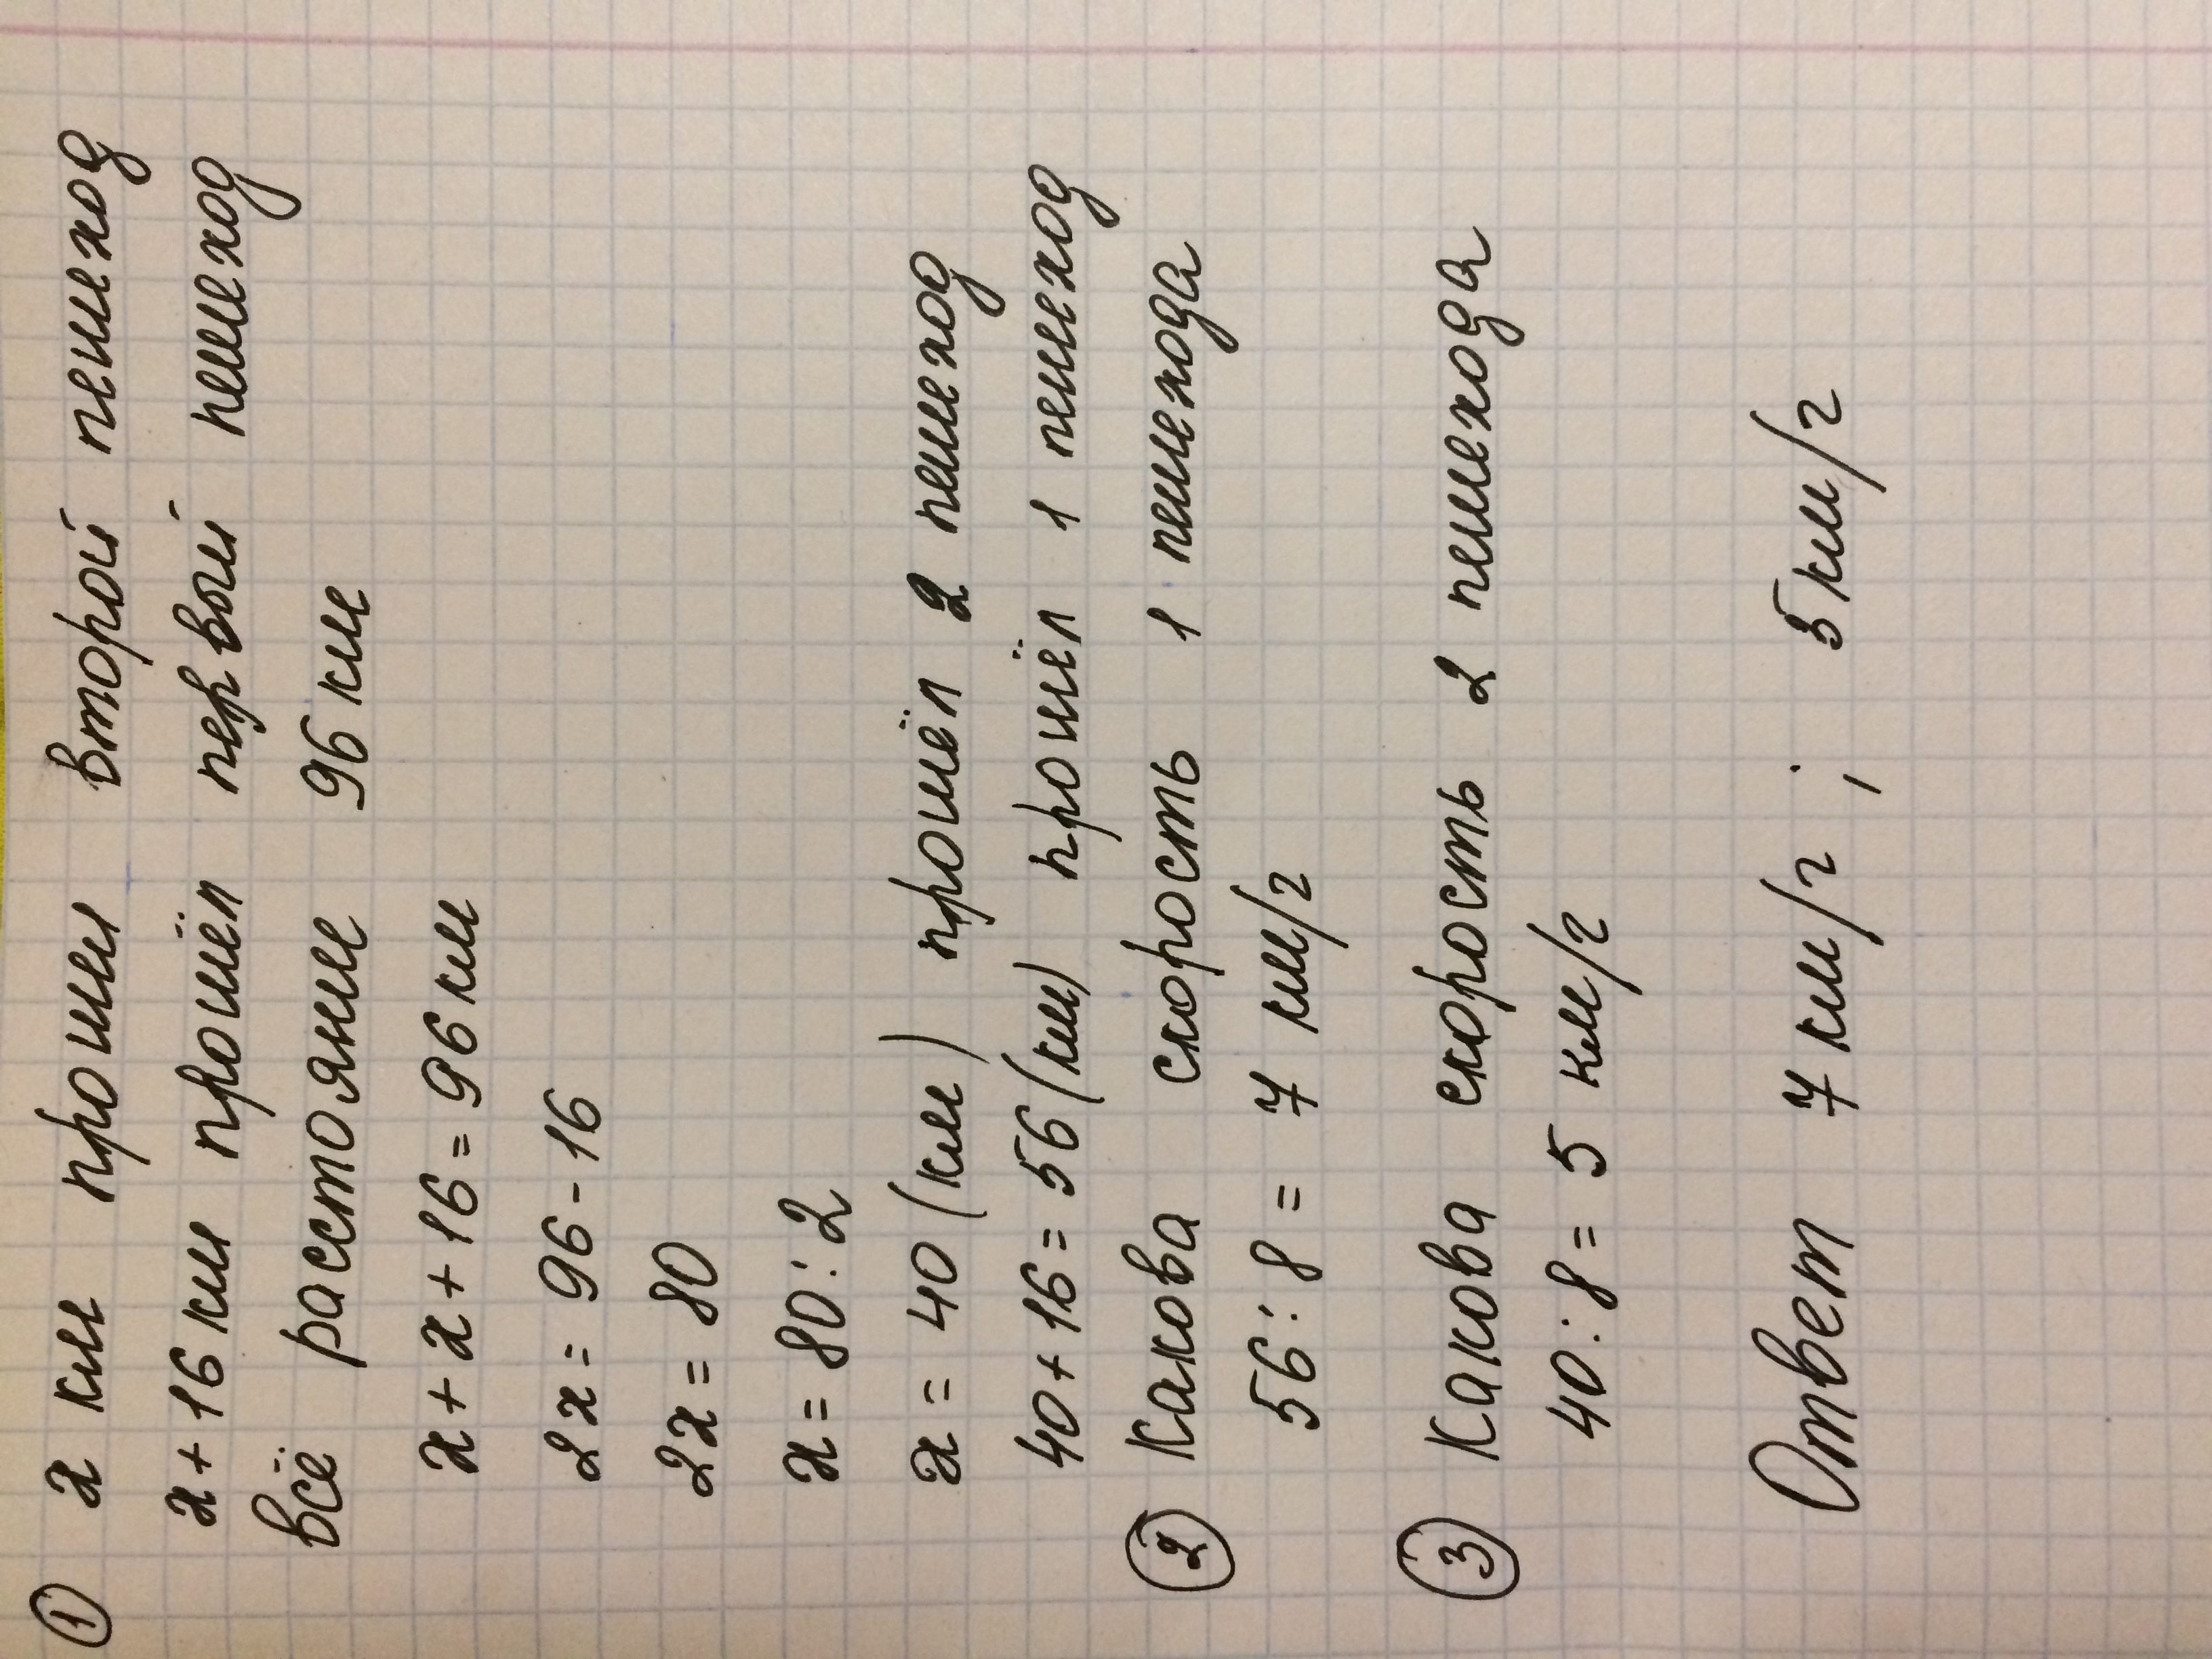 ① x км прошёл второй пешеход
x + 16 км прошёл первый пешеход
всё расстояние 96 км
x + x + 16 = 96 км
2x = 96 - 16
2x = 80
x = 80 : 2
x = 40 (км) прошёл 2 пешеход
40 + 16 = 56 (км) прошёл 1 пешеход
② Какова скорость 1 пешехода
56 : 8 = 7 км/г
③ Какова скорость 2 пешехода
40 : 8 = 5 км/г
Ответ 7 км/г ; 5 км/г